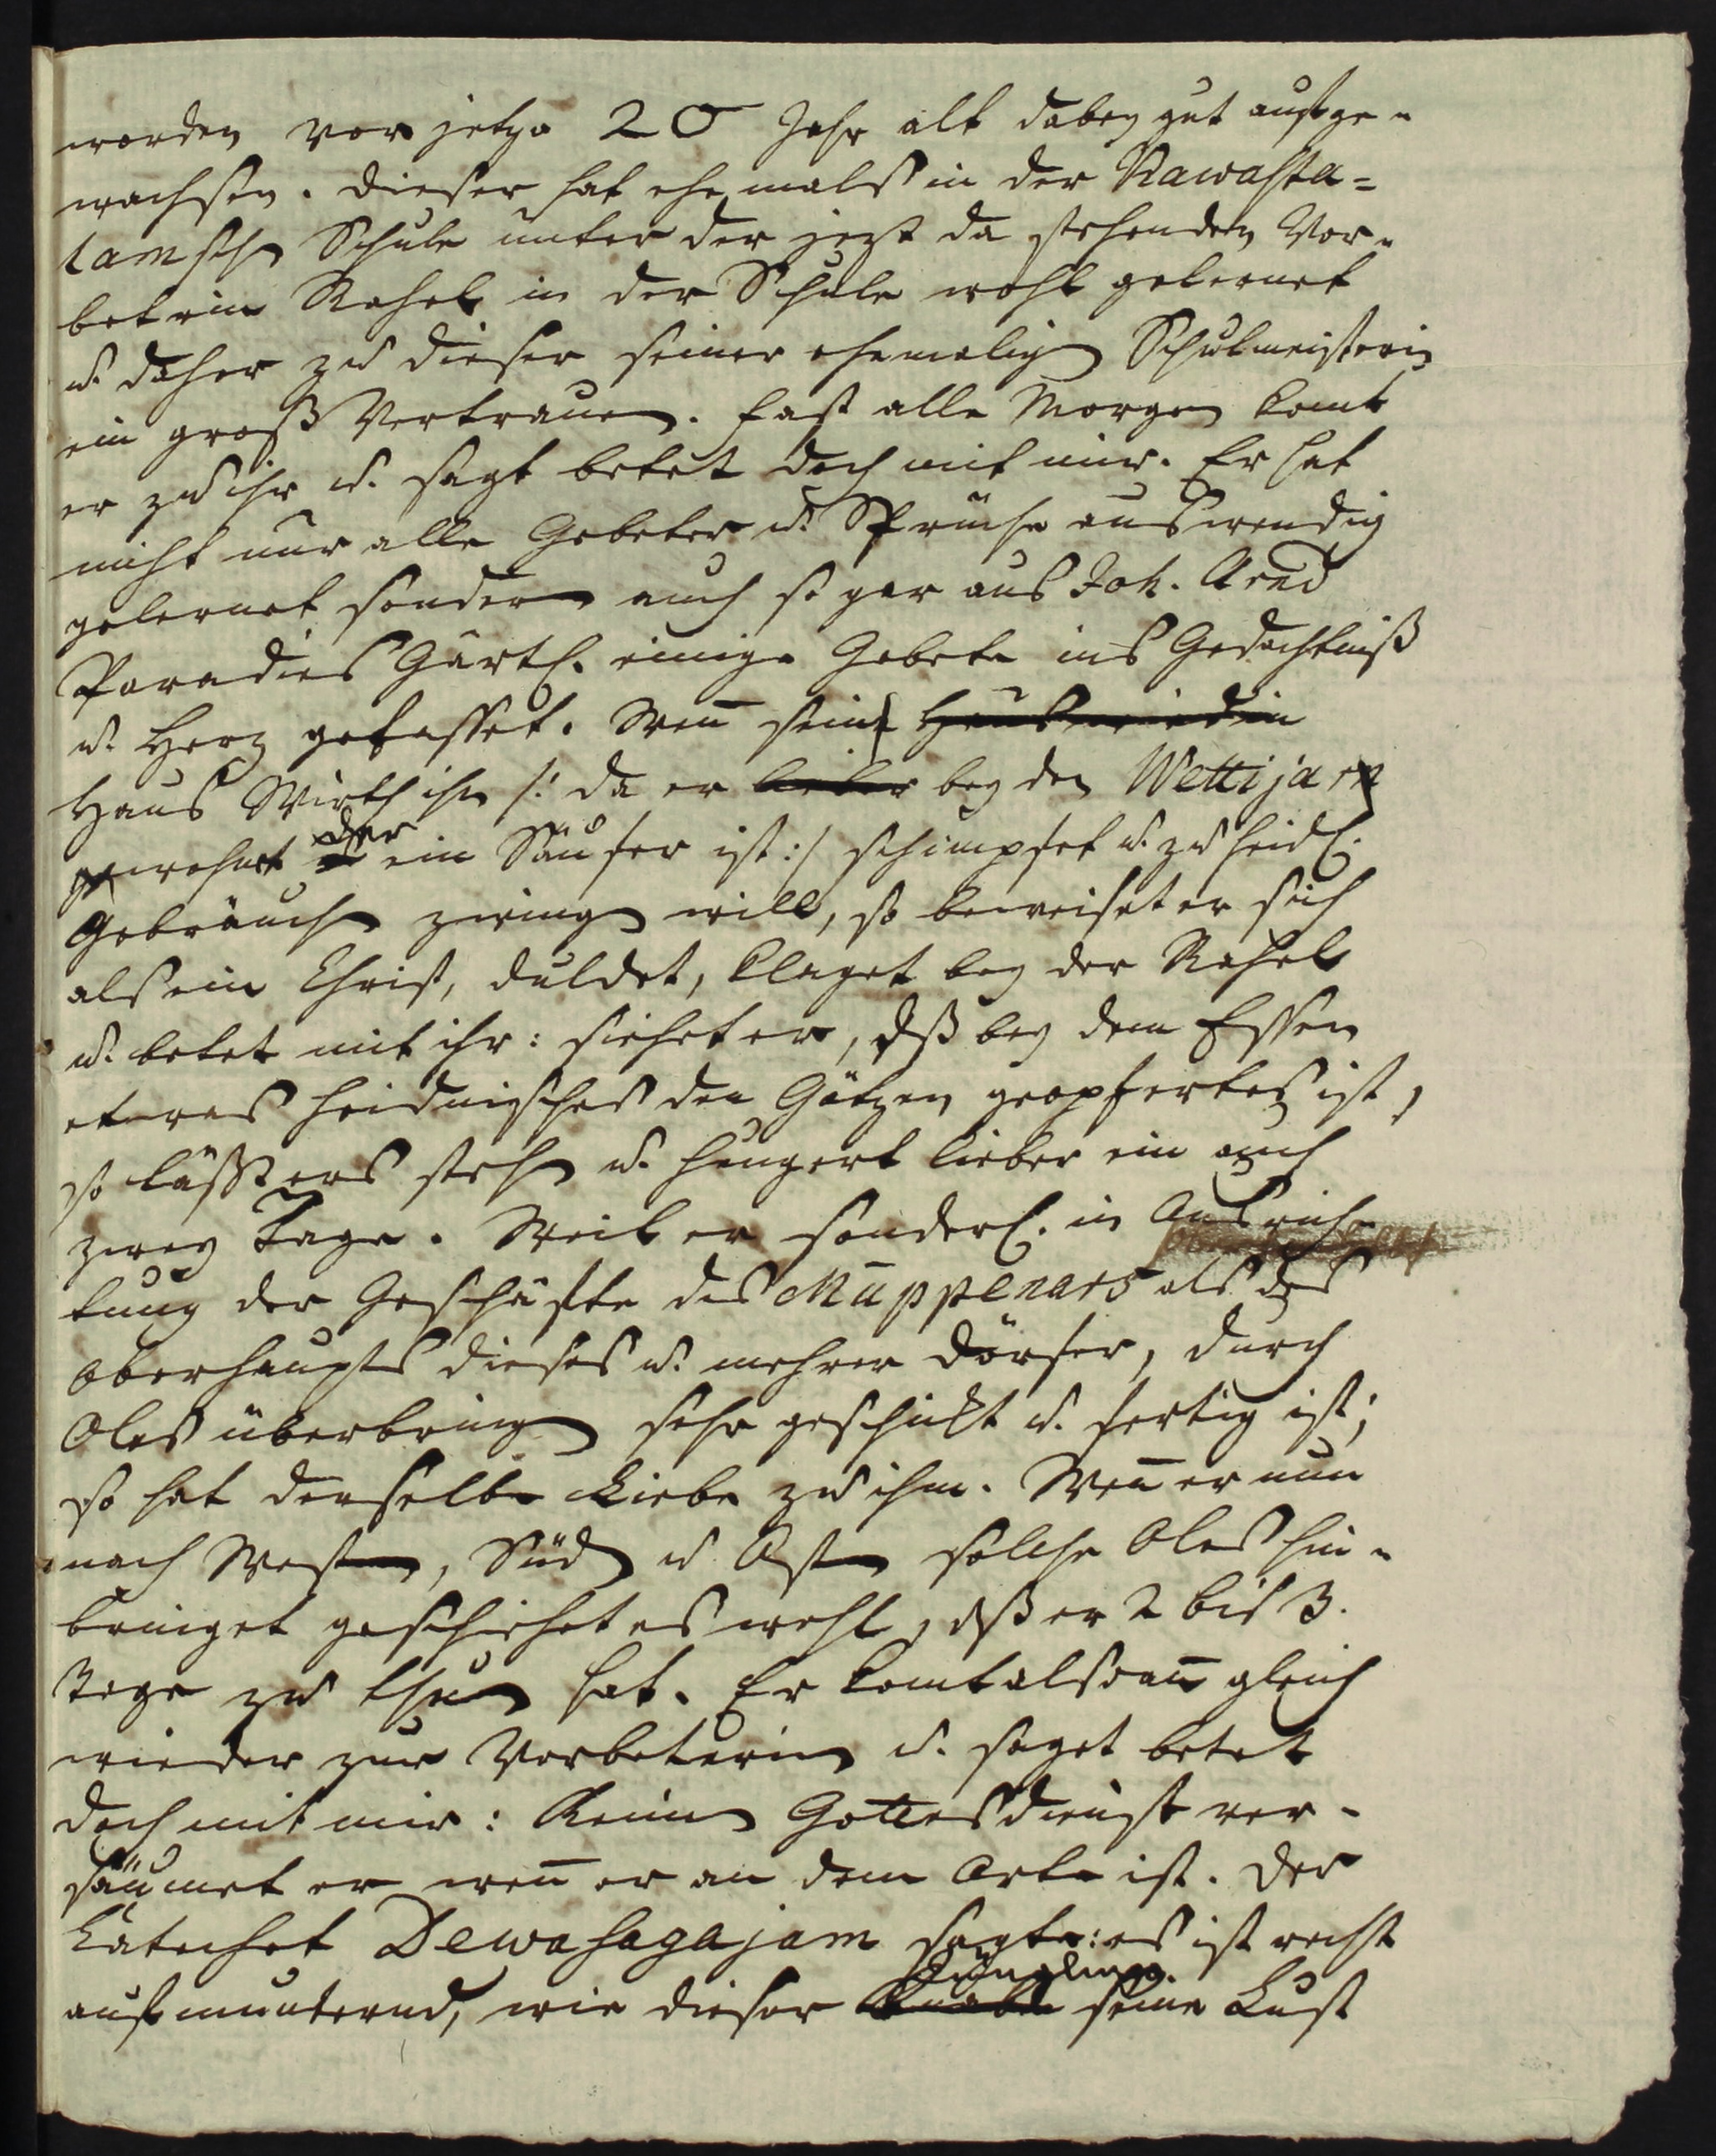 worden vor jetzo 20 Jahr alt dabey gut aufge-
wachsen. Dieser hat ehemals in der Rawasta-
lamsch Schule unter der jezt da stehenden Vor-
betrin Rahel in der Schule wohl gelernet
u. daher zu dieser seiner ehemalign Schulmeisterin
ein groß Vertrauen. Fast alle Morgen komt
er zu ihr u. sagt betet doch mit mir. Er hat
nicht nur alle Gebeter u. Sprüche auswendig
gelernet sondern auch so gar aus Joh. Arnd
Paradies Gärtl. einige Gebete ins Gedächtniß
u. Herz gefasset. Weñ sein
Haus Wirth ihn /: da er bey den Wettijarn
wohnt der ein Säufer ist :/ schimpfet u. zu heidl.
Gebräuchn zwingn will, so beweiset er sich
als ein Christ, duldet, klaget bey der Rahel
u. betet mit ihr: siehet er, dß bey dem Essen
etwas heidnisches den Götzen geopfertes ist,
so läßt ers stehn u. hungert lieber ein auch
zwey Tage. Weil er sonderl. in Ausrich-
tung der Geschäfte des Muppenars als des
Oberhaupts dieses u. mehrer Dörfer, durch
Oles überbringn sehr geschickt u. fertig ist;
so hat derselbe Liebe zu ihm. Weñ er nun
nach Westen, Südn u. Osten solche Oles hin-
bringet geschiehet es wohl, dß er 2 bis 3.
Tage zu thun hat. Er komt alsdañ gleich
wieder zur Vorbeterin u. saget betet
doch mit mir: Keinen Gottesdienst ver-
säumet er weñ er an dem Orte ist. Der
Catechet Dewasagajam sagte: es ist recht
aufmunternd, wie dieser Jüngling seine Lust